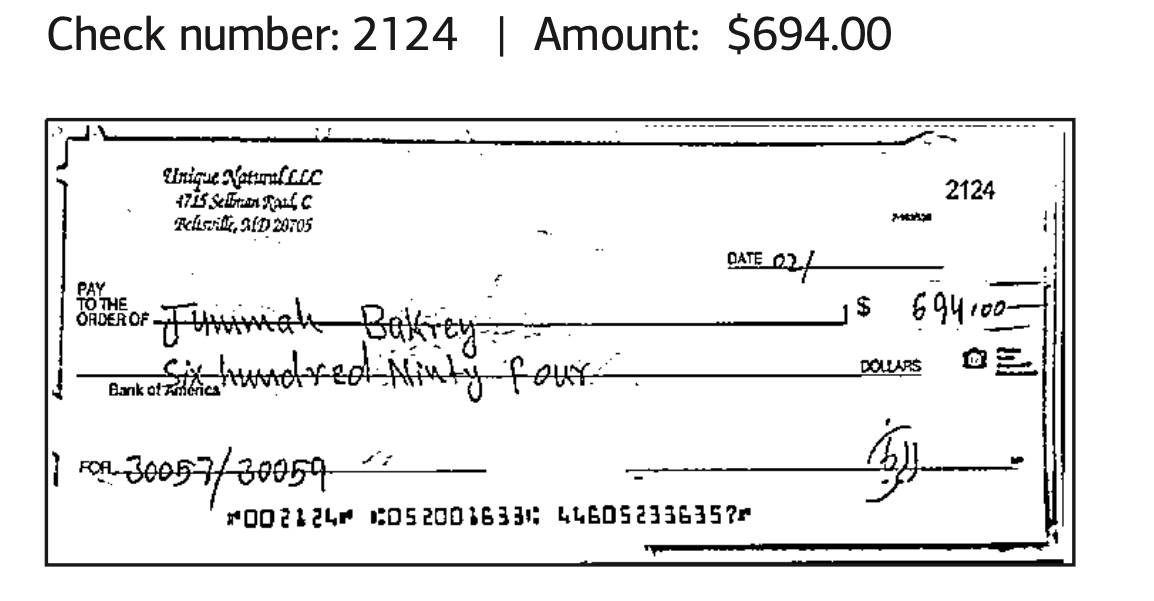 Check number: 2124 | Amount: $694.00
Unique Natural LLC
4715 Sellman Road, C
Beltsville, MD 20705
2124
DATE 02/
PAY
TO THE
ORDER OF Jummah Bakrey $ 694.00
Six hundred Ninty four DOLLARS
Bank of America
FOR 30057/30059
⑈002124⑈ ⑆052001633⑆ 446052336357⑈